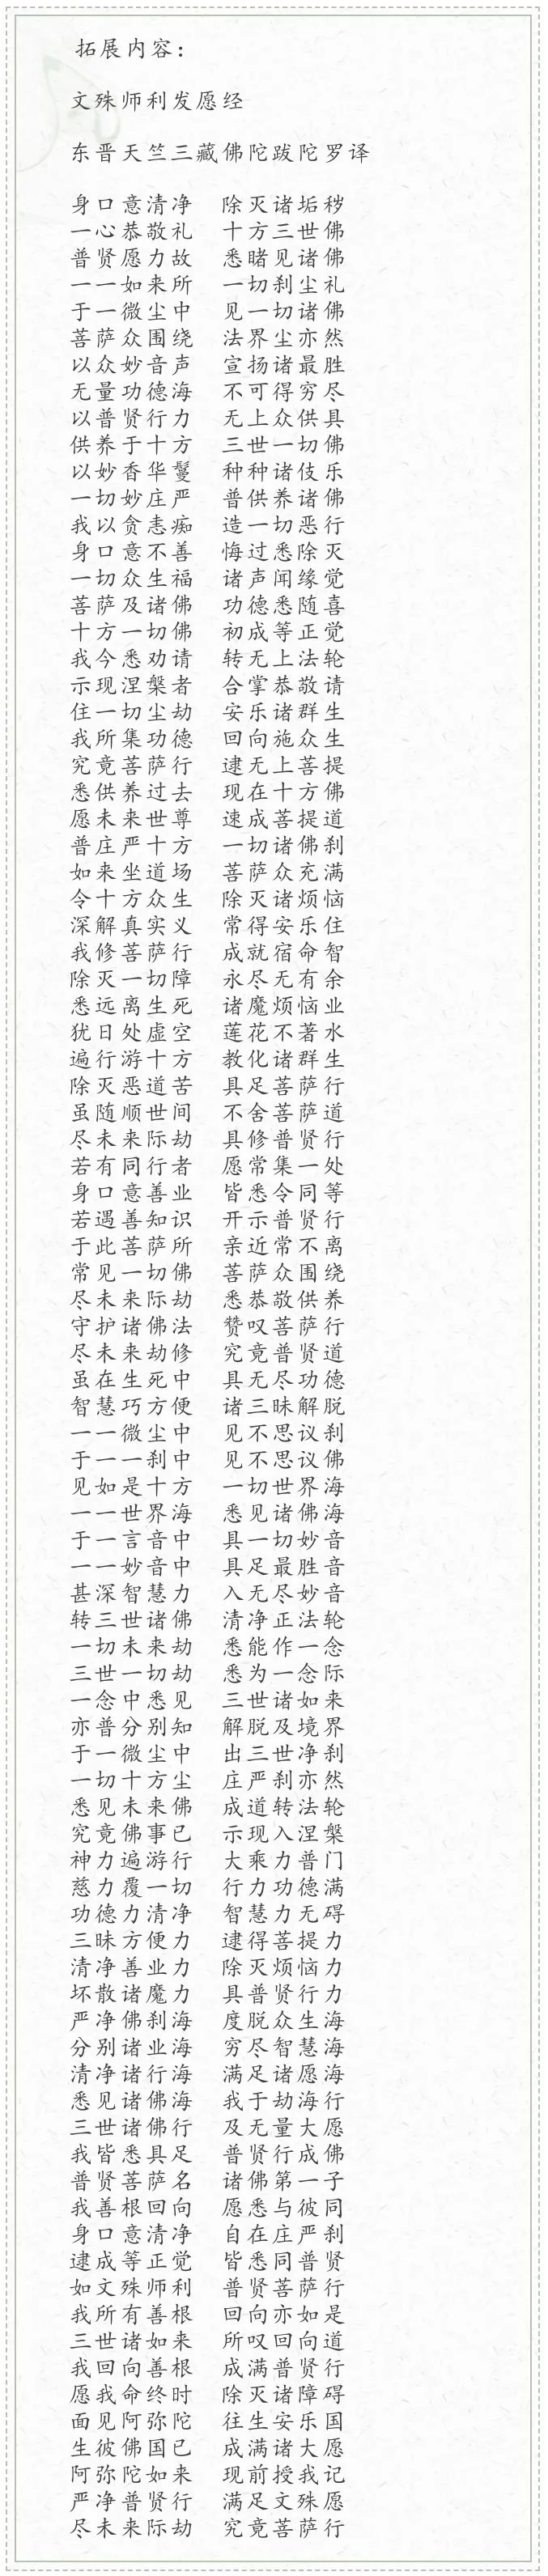 拓展内容：
文殊师利发愿经
东晋天竺三藏佛陀跋陀罗译
身口意清净 除灭诸垢秽
一心恭敬礼 十方三世佛
普贤愿力故 悉睹见诸佛
一一如来所 一切刹尘礼
于一微尘中 见一切诸佛
菩萨众围绕 法界尘亦然
以众妙音声 宣扬诸最胜
无量功德海 不可得穷尽
以普贤行力 无上众供具
供养于十方 三世一切佛
以妙香华鬘 种种诸伎乐
一切妙庄严 普供养诸佛
我以贪恚痴 造一切恶行
身口意不善 悔过悉除灭
一切众生福 诸声闻缘觉
菩萨及诸佛 功德悉随喜
十方一切佛 初成等正觉
我今悉劝请 转无上法轮
示现涅槃者 合掌恭敬请
住一切尘劫 安乐诸群生
我所集功德 回向施众生
究竟菩萨行 逮无上菩提
悉供养过去 现在十方佛
愿未来世尊 速成菩提道
普庄严十方 一切诸佛刹
如来坐道场 菩萨众充满
令十方众生 除灭诸烦恼
深解真实义 常得安乐住
我修菩萨行 成就宿命智
除灭一切障 永尽无有余
悉远离生死 诸魔烦恼业
犹日处虚空 莲花不著水
遍行游十方 教化诸群生
除灭恶道苦 具足菩萨行
虽随顺世间 不舍菩萨道
尽未来际劫 具修普贤行
若有同行者 愿常集一处
身口意善业 皆悉令同等
若遇善知识 开示普贤行
于此菩萨所 亲近常不离
常见一切佛 菩萨众围绕
尽未来际劫 悉恭敬供养
守护诸佛法 赞叹菩萨行
尽未来劫修 究竟普贤道
虽在生死中 具无尽功德
智慧巧方便 诸三昧解脱
一一微尘中 见不思议刹
于一一刹中 见不思议佛
见如是十方 一切世界海
一一世界海 悉见诸佛海
于一言音中 具一切妙音
一一妙音中 具足最胜音
甚深智慧力 入无尽妙音
转三世诸佛 清净正法轮
一切未来劫 悉能作一念
三世一切劫 悉为一念际
一念中悉见 三世诸如来
亦普分别知 解脱及境界
于一微尘中 出三世净刹
一切十方尘 庄严刹亦然
悉见未来佛 成道转法轮
究竟佛事已 示现入涅槃
神力遍游行 大乘力普门
慈力覆一切 行力功德满
功德力清净 智慧力无碍
三昧方便力 逮得菩提力
清净善业力 除灭烦恼力
坏散诸魔力 具普贤行力
严净佛刹海 度脱众生海
分别诸业海 穷尽智慧海
清净诸行海 满足诸愿海
悉见诸佛海 我于劫海行
三世诸佛行 及无量大愿
我皆悉具足 普贤行成佛
普贤菩萨名 诸佛第一子
我善根回向 愿悉与彼同
身口意清净 自在庄严刹
逮成等正觉 皆悉同普贤
如文殊师利 普贤菩萨行
我所有善根 回向亦如是
三世诸如来 所叹回向道
我回向善根 成满普贤行
愿我命终时 除灭诸障碍
面见阿弥陀 往生安乐国
生彼佛国已 成满诸大愿
阿弥陀如来 现前授我记
严净普贤行 满足文殊愿
尽未来际劫 究竟菩萨行